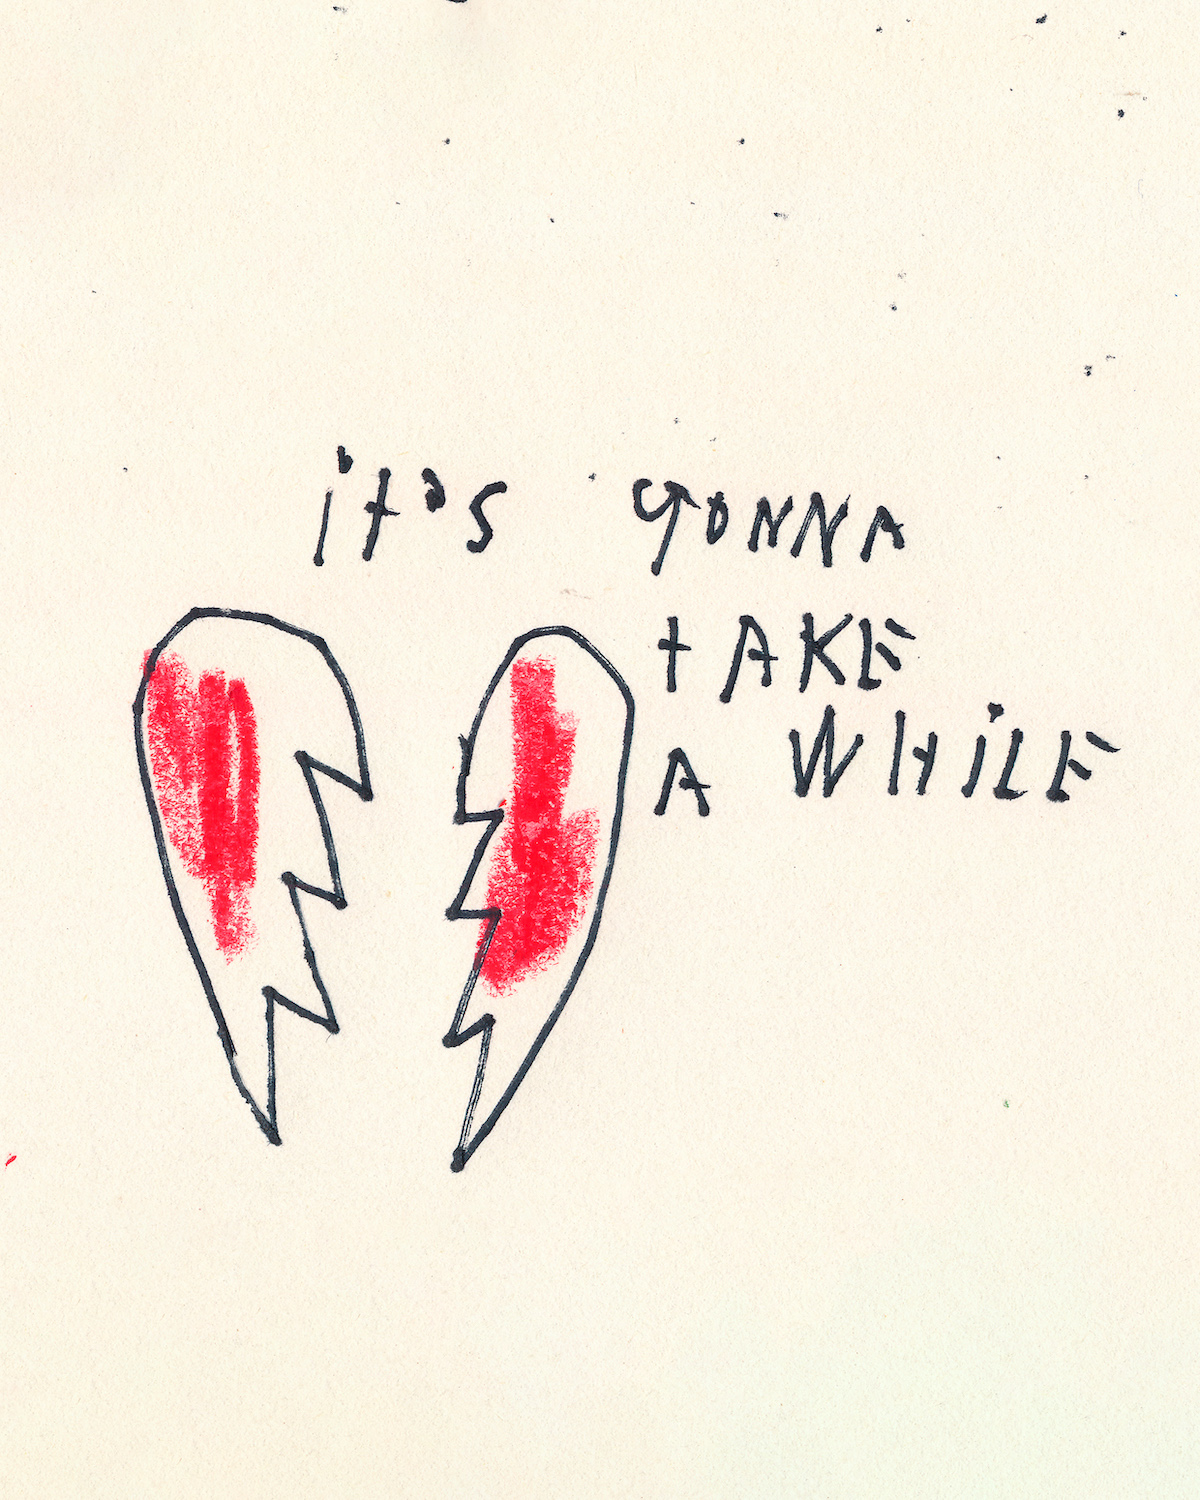 it's gONNA
tAKE
A WHiLE